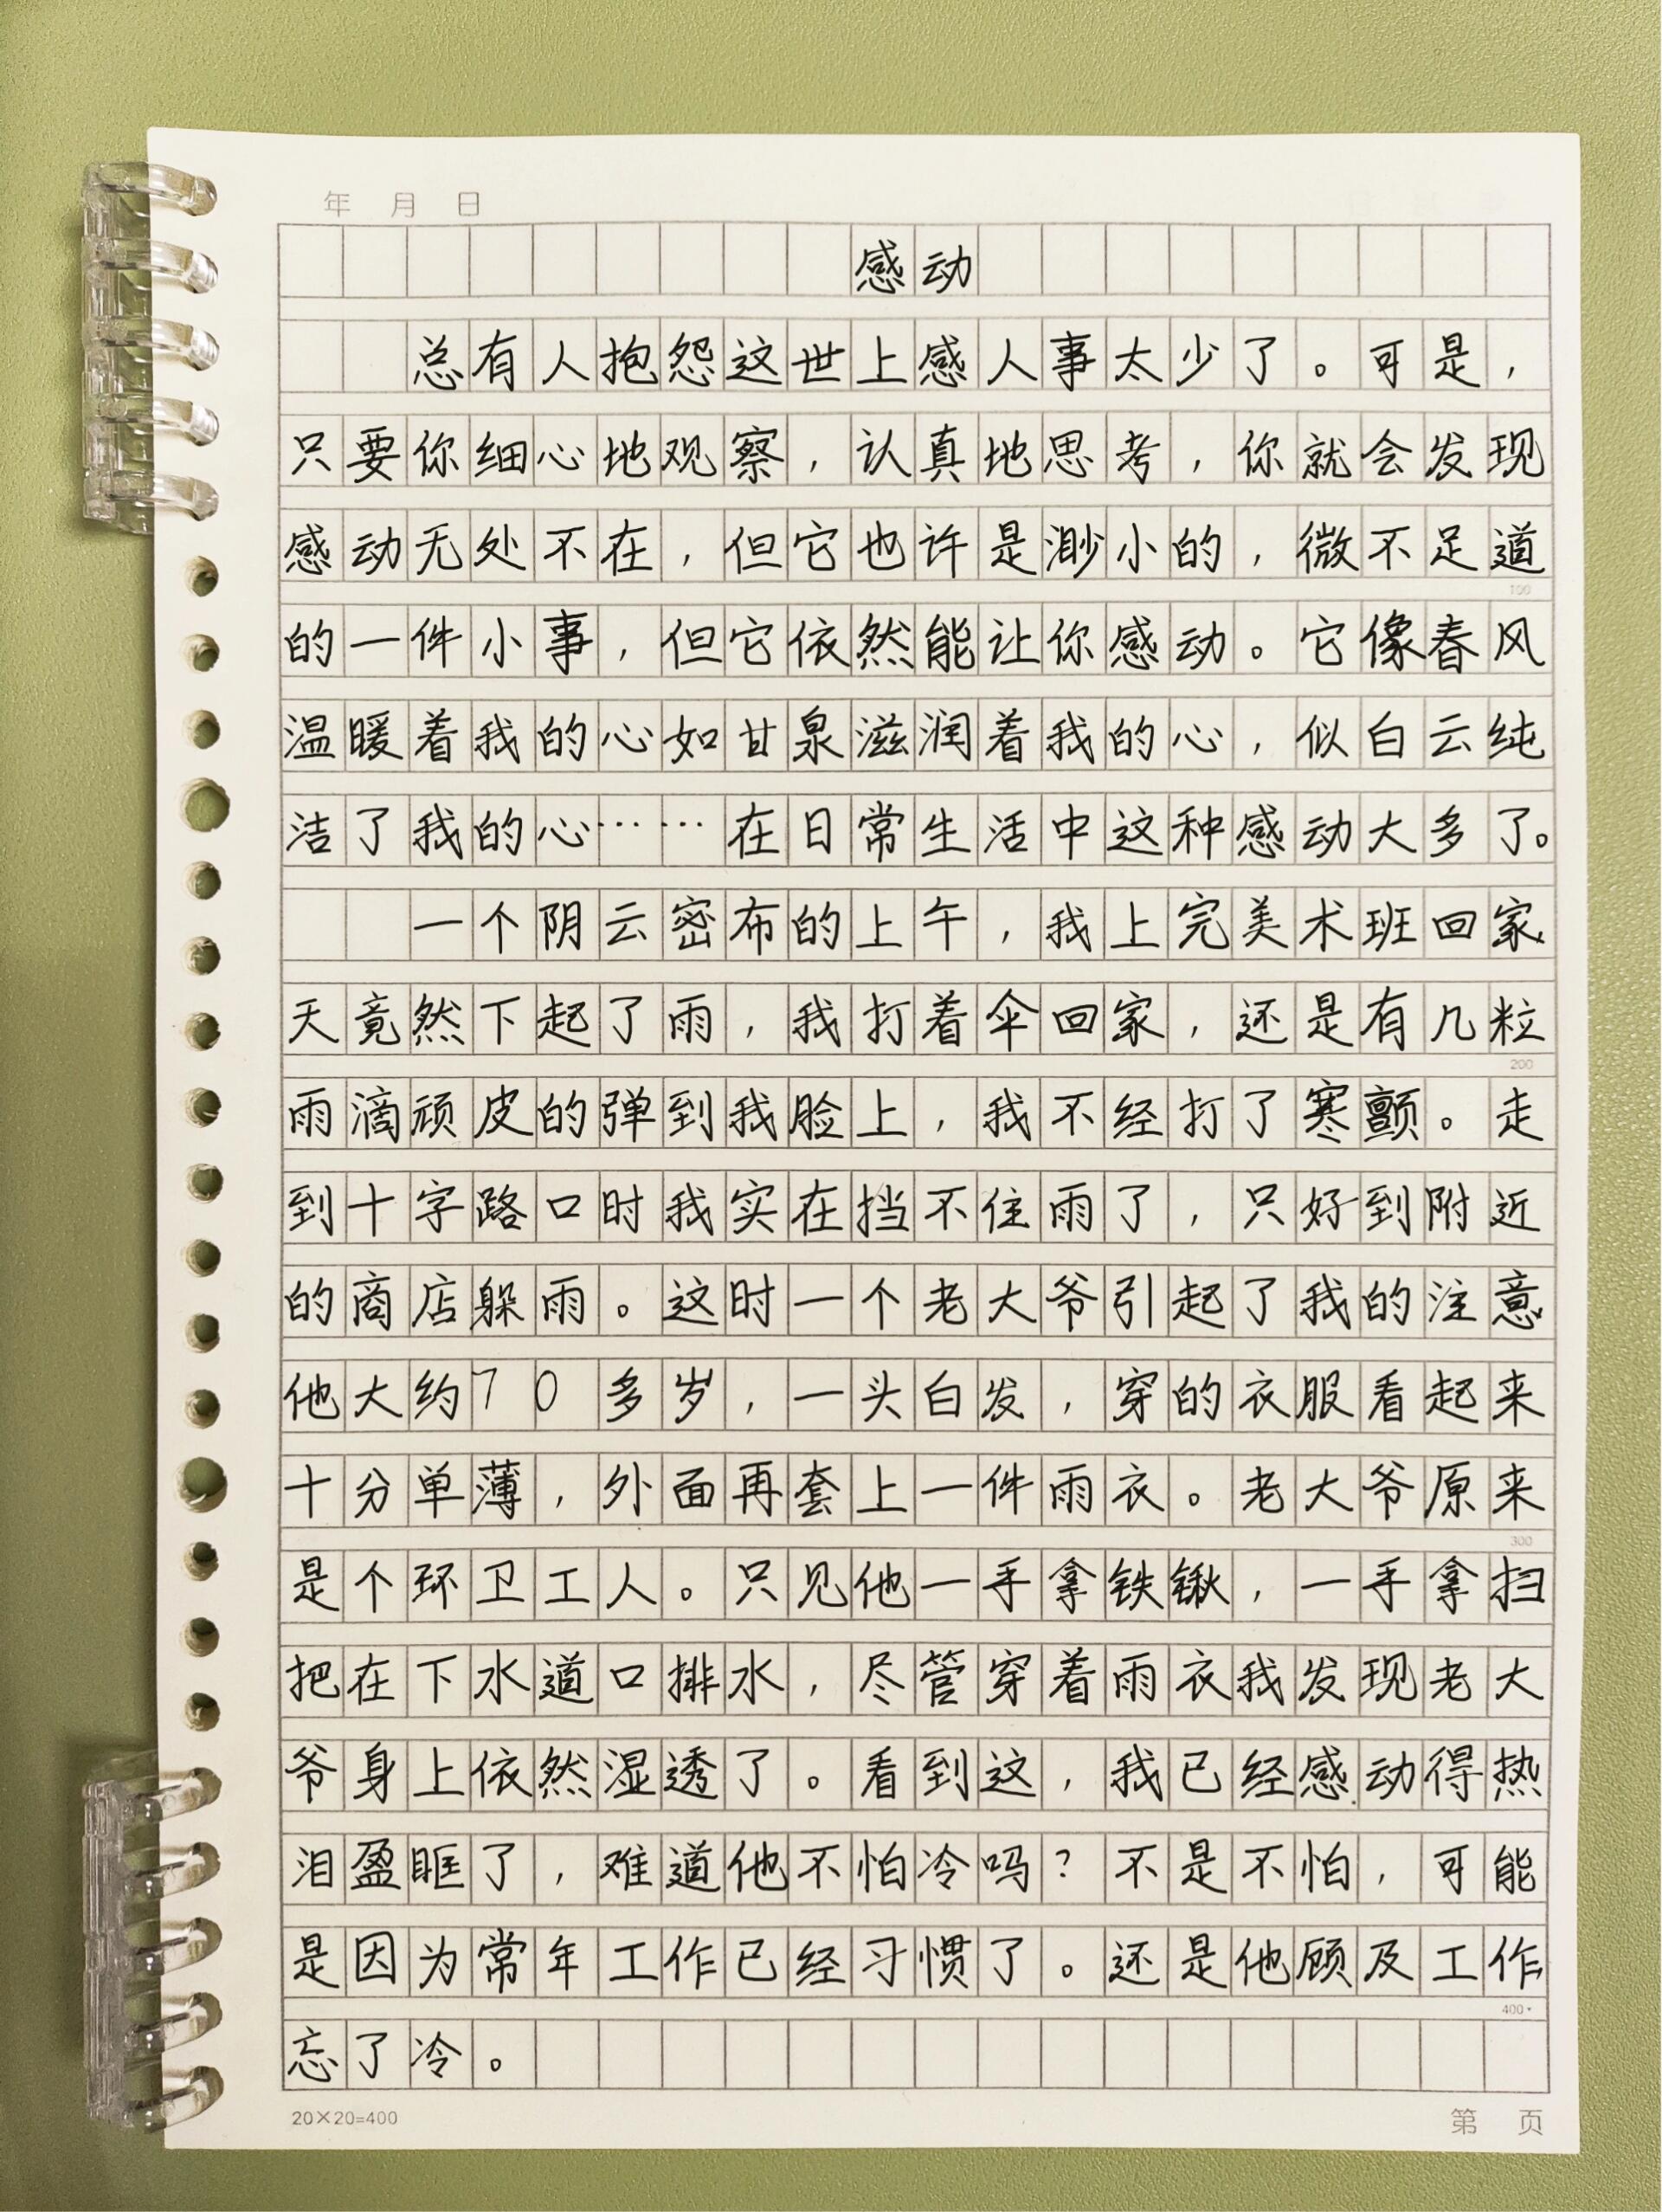 年 月 日
感动
总有人抱怨这世上感人事太少了。可是，
只要你细心地观察，认真地思考，你就会发现
感动无处不在，但它也许是渺小的，微不足道
100
的一件小事，但它依然能让你感动。它像春风
温暖着我的心如甘泉滋润着我的心，似白云纯
洁了我的心……在日常生活中这种感动大多了。
一个阴云密布的上午，我上完美术班回家，
天竟然下起了雨，我打着伞回家，还是有几粒
200
雨滴顽皮的弹到我脸上，我不经打了寒颤。走
到十字路口时我实在挡不住雨了，只好到附近
的商店躲雨。这时一个老大爷引起了我的注意，
他大约70多岁，一头白发，穿的衣服看起来
十分单薄，外面再套上一件雨衣。老大爷原来
300
是个环卫工人。只见他一手拿铁锹，一手拿扫
把在下水道口排水，尽管穿着雨衣我发现老大
爷身上依然湿透了。看到这，我已经感动得热
泪盈眶了，难道他不怕冷吗？不是不怕，可能
是因为常年工作已经习惯了。还是他顾及工作，
400
忘了冷。
20×20=400 第 页